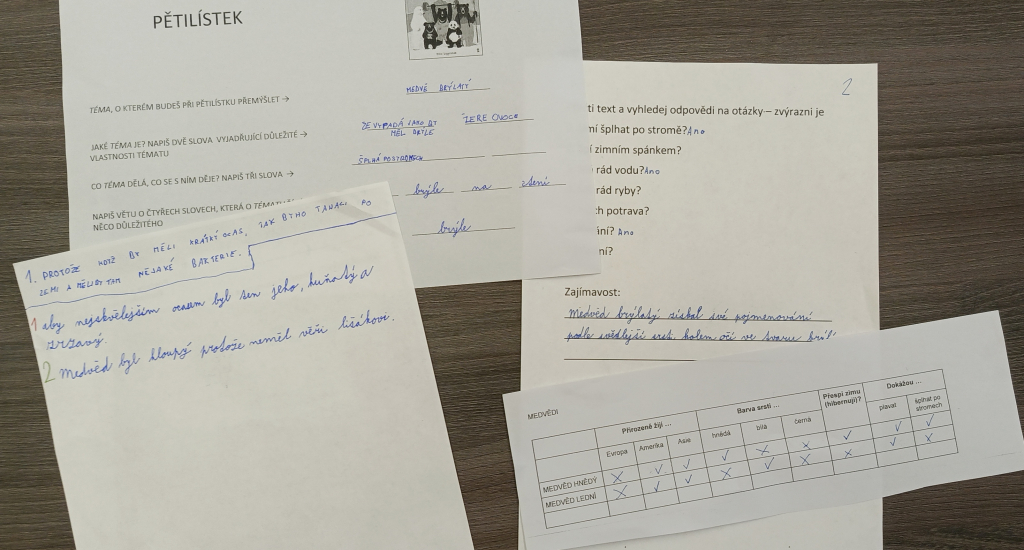 PĚTILÍSTEK
TÉMA, O KTERÉM BUDEŠ PŘI PĚTILÍSTKU PŘEMÝŠLET →
MEDVĚ BRÝLATÝ
JAKÉ TÉMA JE? NAPIŠ DVĚ SLOVA VYJADŘUJÍCÍ DŮLEŽITÉ →
VLASTNOSTI TÉMATU
ŽE VYPADÁ JAKO BY
MĚL BRÝLE
ŽERE OVOCE
CO TÉMA DĚLÁ, CO SE S NÍM DĚJE? NAPIŠ TŘI SLOVA →
ŠPLHÁ POSTROMECH
NAPIŠ VĚTU O ČTYŘECH SLOVECH, KTERÁ O
NĚCO DŮLEŽITÉHO
brýle na čtení
brýle
1. PROTOŽE KDYŽ BY MĚLI KRÁTKÝ OCAS, TAK BYHO TAHALI PO
ZEMI A MĚLIBY TAM NĚJAKÉ BAKTERIE.
1 aby nejskvělejším ocasem byl ten jeho, huňatý a
zrzavý.
2 Medvěd byl hloupý protože neměl věřit lišákovi.
2
ti text a vyhledej odpovědi na otázky – zvýrazni je
ní šplhat po stromě? Ano
í zimním spánkem?
rád vodu? Ano
rád ryby?
h potrava?
ání? Ano
ní?
Zajímavost:
Medvěd brýlatý získal své pojmenování
podle světlejší srsti kolem očí ve tvaru brýlí
MEDVĚDI
Přirozeně žijí ...
Barva srsti ...
Přespí zimu
(hibernují)?
Dokážou ...
Evropa
Amerika
Asie
hnědá
bílá
černá
plavat
šplhat po
stromech
MEDVĚD HNĚDÝ ✗ ✓ ✓ ✓ ✗ ✗ ✓ ✓ ✓
MEDVĚD LEDNÍ ✗ ✓ ✓ ✗ ✓ ✗ ✗ ✓ ✗